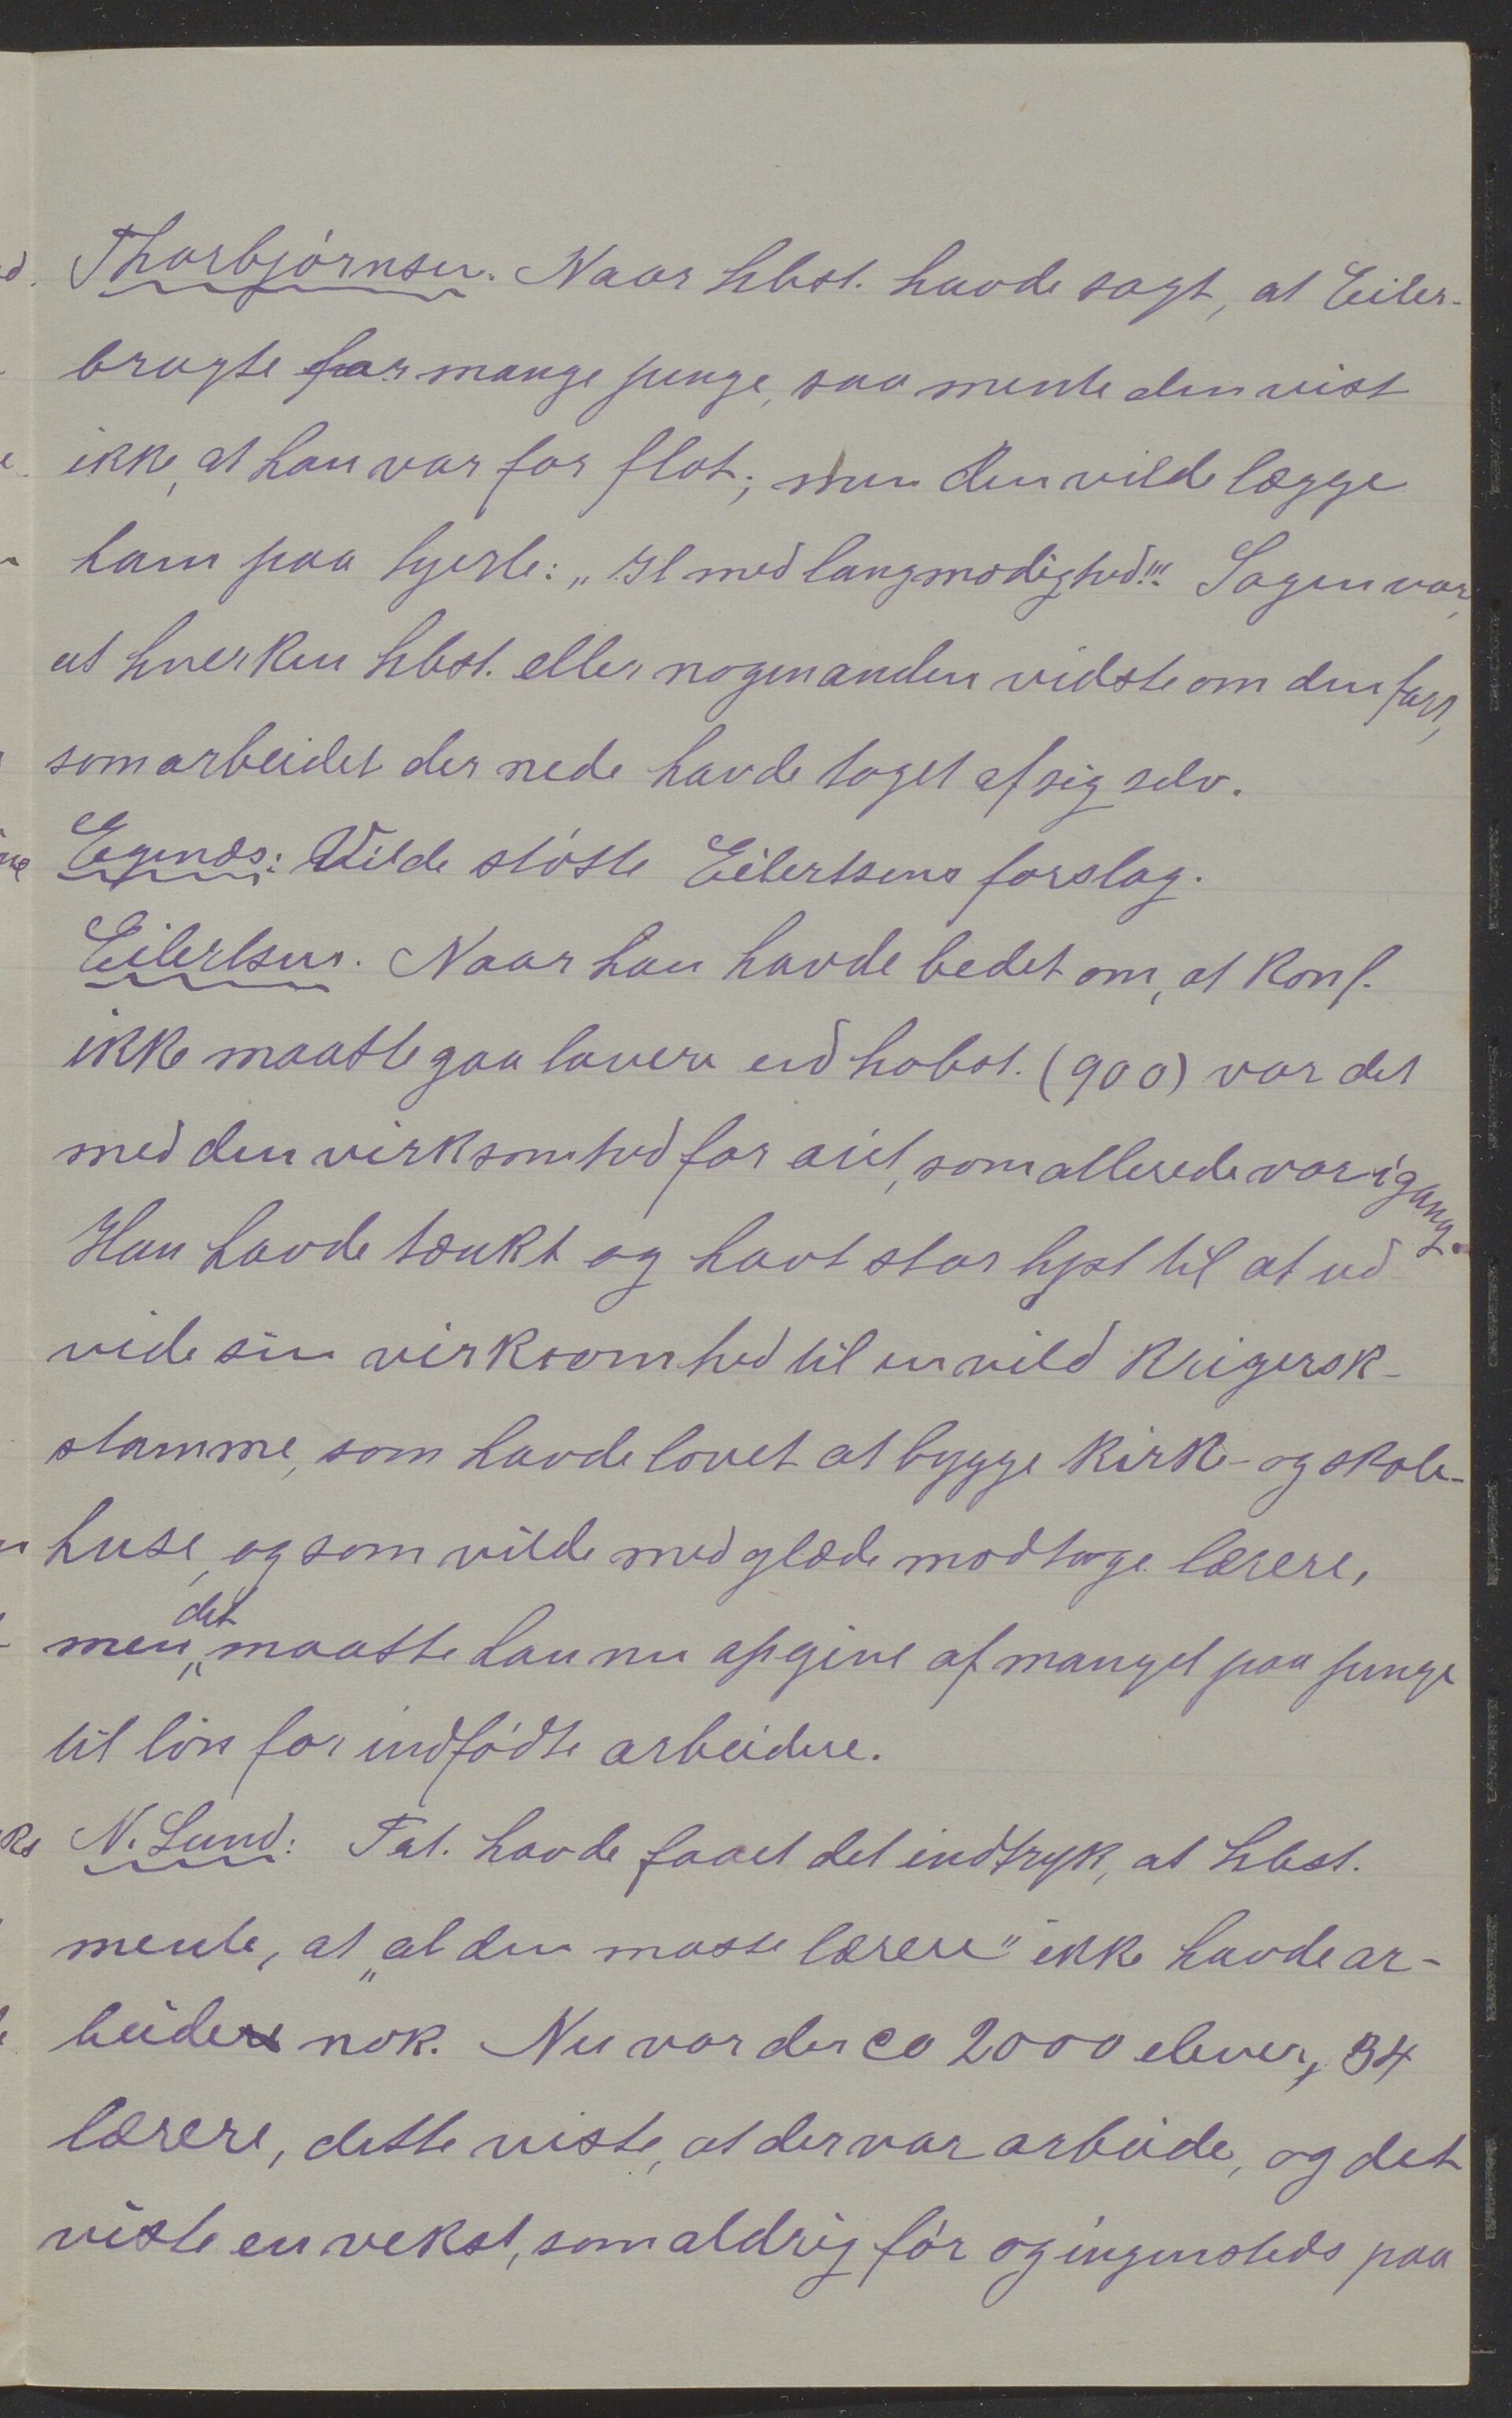 Thorbjörnsen. Naar hbst. havde sagt, at Eiler-
brugte for mange penge, saa mente den vist
ikke, at han var for flot; men den vilde lægge
ham paa hjerte: „Il med langmodighed!!" Sagen var,
at hverken hbst. eller nogen anden vidste om den fart,
som arbeidet der nede havde taget af sig selv.
Egenæs: Vilde støtte Eilertsens forslag.
Eilertsen. Naar han havde bedet om, at konf.
ikke maatte gaa lavere end hobst. (900) var det
med den virksomhed for øiet, som allerede var igang.
Han havde tænkt og havt stor lyst til at ud
vide sin virksomhed til en vild krigersk-
stamme, som havde lovet at bygge kirke- og skole-
huse, og som vilde med glæde modtage lærere,
men det maatte han nu opgive af mangel paa penge
til lön for indfödte arbeidere.
N. Lund: Tal. havde faaet det indtryk, at hbst.
mente, at „al den masse lærere" ikke havde ar-
beide nok. Nu var der ca 2000 elever, 34
lærere, dette viste, at der var arbeide, og det
viste en vekst, som aldrig för og ingensteds paa